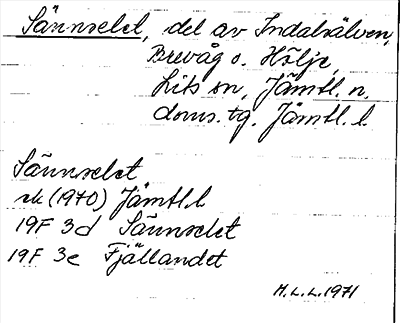 Sännselet, del av Indalsälven,
Brevåg o. Hölje,
Lits sn, Jämtl. n.
doms. tg. Jämtl. l.
Sännselet
ek (1970) Jämtl. l
19F 3d Sännselet
19F 3e Fjällandet
H.L.L. 1971